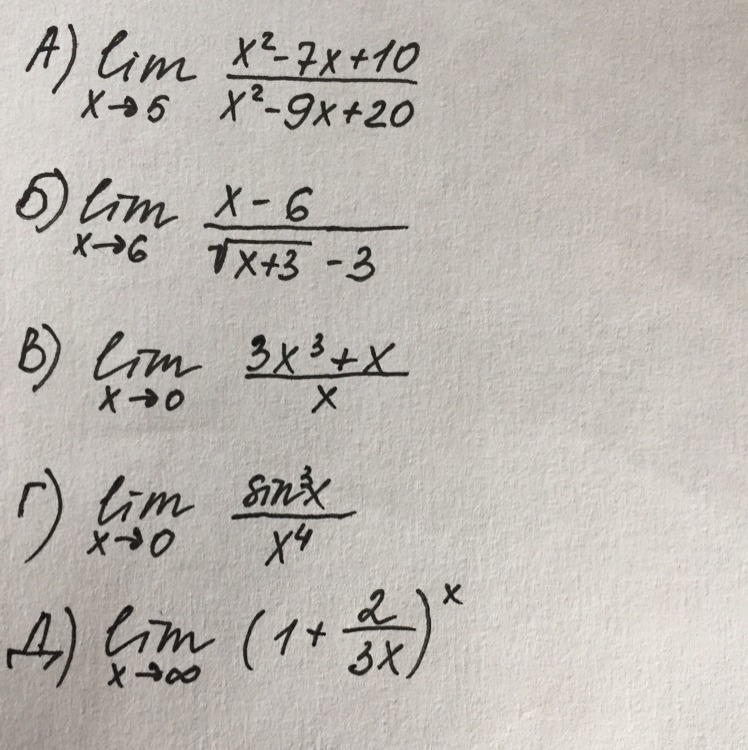 А) lim x→5 (x²-7x+10)/(x²-9x+20)
Б) lim x→6 (x-6)/(√(x+3) -3)
В) lim x→0 (3x³+x)/x
Г) lim x→0 sin³x/x⁴
Д) lim x→∞ (1+2/(3x))^x